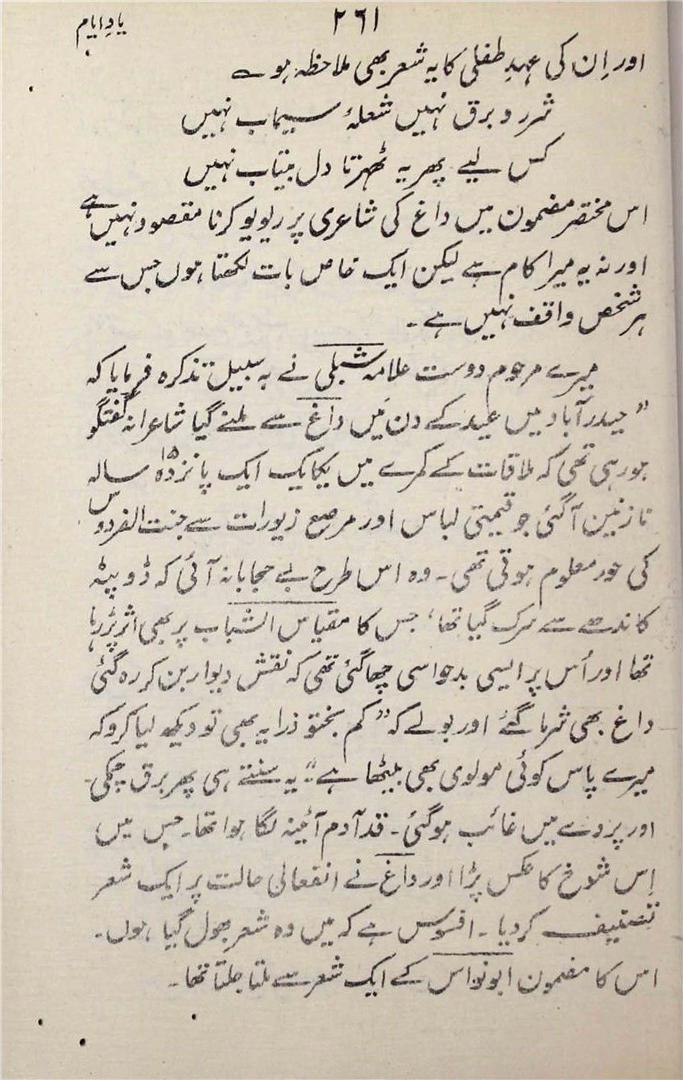 یادِ ایام
۲۶۱
اور اِن کی عہدِ طفلی کا یہ شعر بھی ملاحظہ ہو ؎
شرر و برق نہیں شعلۂ سیماب نہیں
کس لیے پھر یہ ٹھہرتا دل بیتاب نہیں
اس مختصر مضمون میں داغ کی شاعری پر ریویو کرنا مقصود نہیں ہے
اور نہ یہ میرا کام ہے لیکن ایک خاص بات لکھتا ہوں جس سے
ہر شخص واقف نہیں ہے۔
میرے مرحوم دوست علامہ شبلی نے بہ سبیل تذکرہ فرمایا کہ
"حیدرآباد میں عید کے دن مَیں داغ سے ملنے گیا شاعرانہ گفتگو
ہورہی تھی کہ ملاقات کے کمرے میں یکایک ایک پانزدہ ۱۵ سالہ
نازنین آگئی جو قیمتی لباس اور مرصع زیورات سے جنت الفردوس
کی حور معلوم ہوتی تھی۔ وہ اس طرح بے حجابانہ آئی کہ ڈوپٹہ
کاندھے سے سرک گیا تھا، جس کا مقیاس الشباب پر بھی اثر پڑ رہا
تھا اور اُس پر ایسی بدحواسی چھا گئی تھی کہ نقش دیوار بن کر رہ گئی
داغ بھی شرما گئے اور بولے کہ "کم بختو ذرا یہ بھی تو دیکھ لیا کرو کہ
میرے پاس کوئی مولوی بھی بیٹھا ہے" یہ سنتے ہی پھر برق چمکی
اور پردے میں غائب ہوگئی۔ قد آدم آئینہ لگا ہوا تھا۔ جس میں
اِس شوخ کا عکس پڑا اور داغ نے انفعالی حالت پر ایک شعر
تصنیف کردیا۔ افسوس ہے کہ میں وہ شعر بھول گیا ہوں۔
اس کا مضمون ابونواس کے ایک شعر سے ملتا جلتا تھا۔